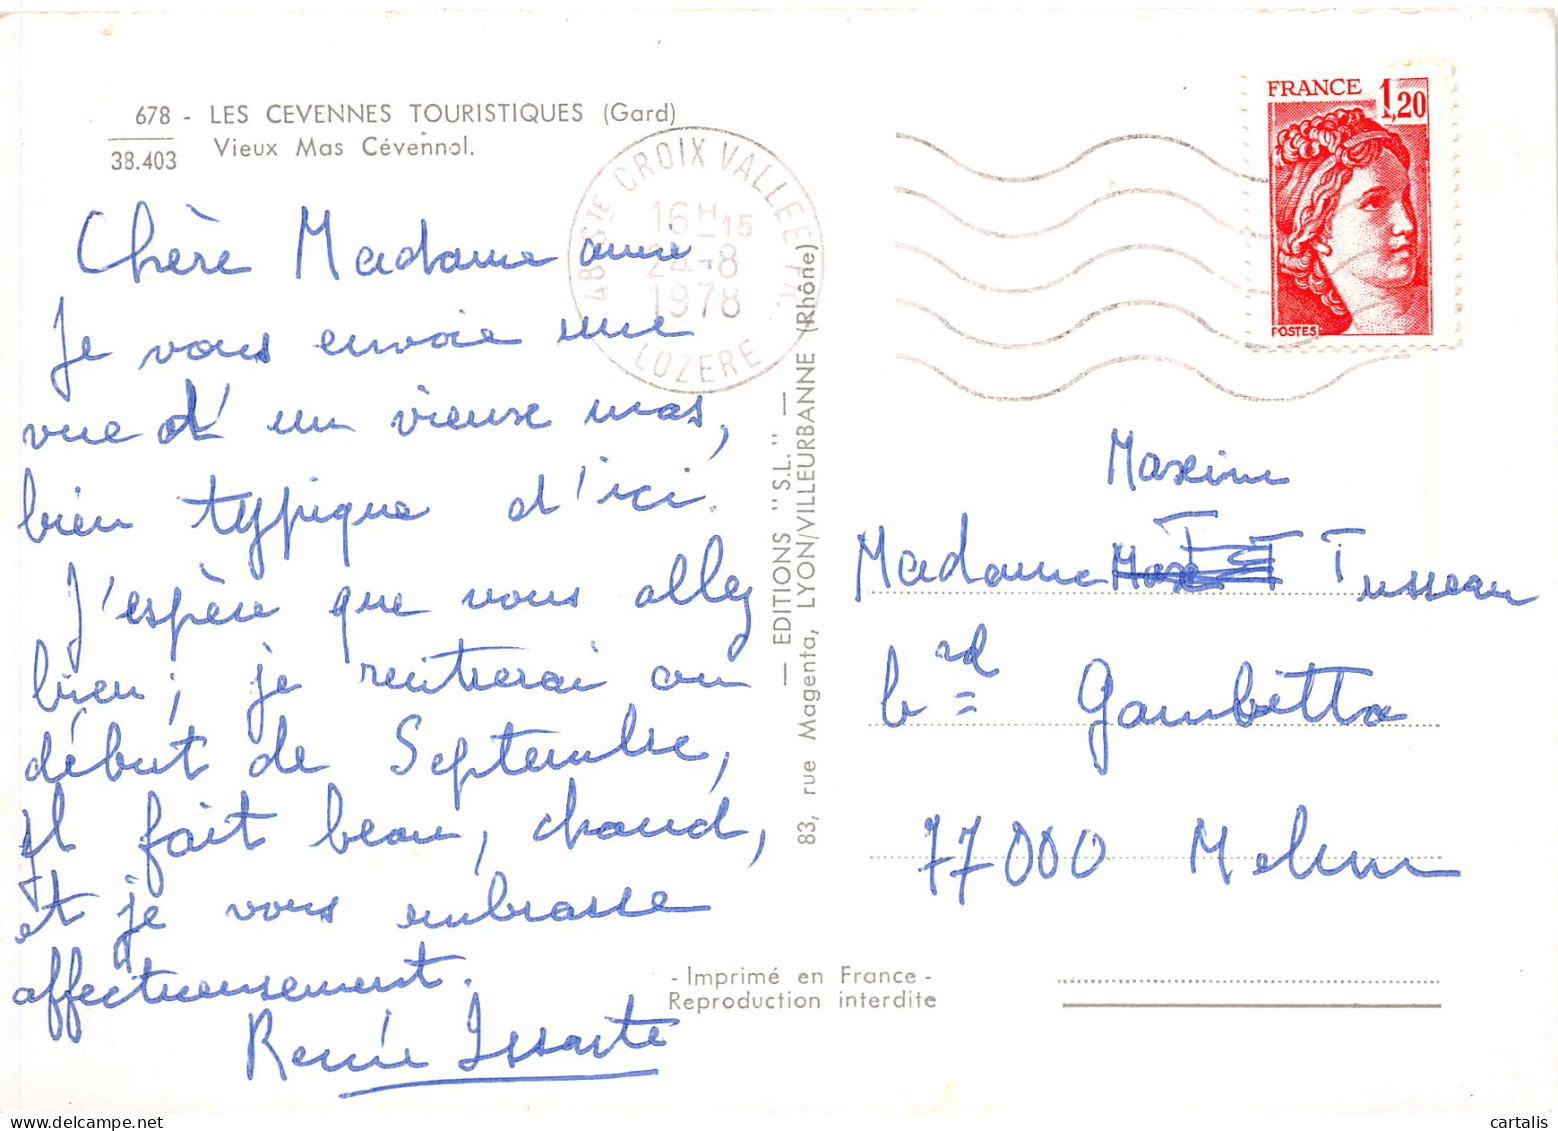 678 - LES CEVENNES TOURISTIQUES (Gard)
38.403 Vieux Mas Cévennol.
48 Ste CROIX VALLEE FR.
16H15
24-8
1978
LOZERE
FRANCE 1,20
POSTES
Chère Madame amie
Je vous envoie une
vue d'un vieux mas,
bien typique d'ici.
J'espère que vous allez
bien; je rentrerai au
début de Septembre,
Il fait beau, chaud,
et je vous embrasse
affectueusement.
Renée Issarte
— EDITIONS "S.L." —
83, rue Magenta, LYON/VILLEURBANNE (Rhône)
Maxime
Madame Tusseau
brd Gambetta
77000 Melun
- Imprimé en France -
Reproduction interdite
cartalis